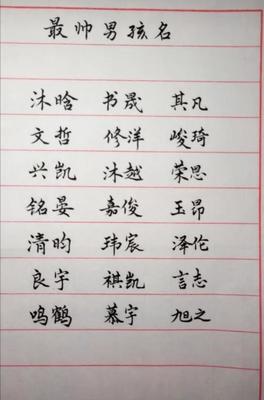 最帅男孩名
沐晗 书晟 其凡
文哲 修洋 峻琦
兴凯 沐越 荣思
铭晏 嘉俊 玉昂
清昀 玮宸 泽伦
良宇 祺凯 言志
鸣鹤 慕宇 旭之